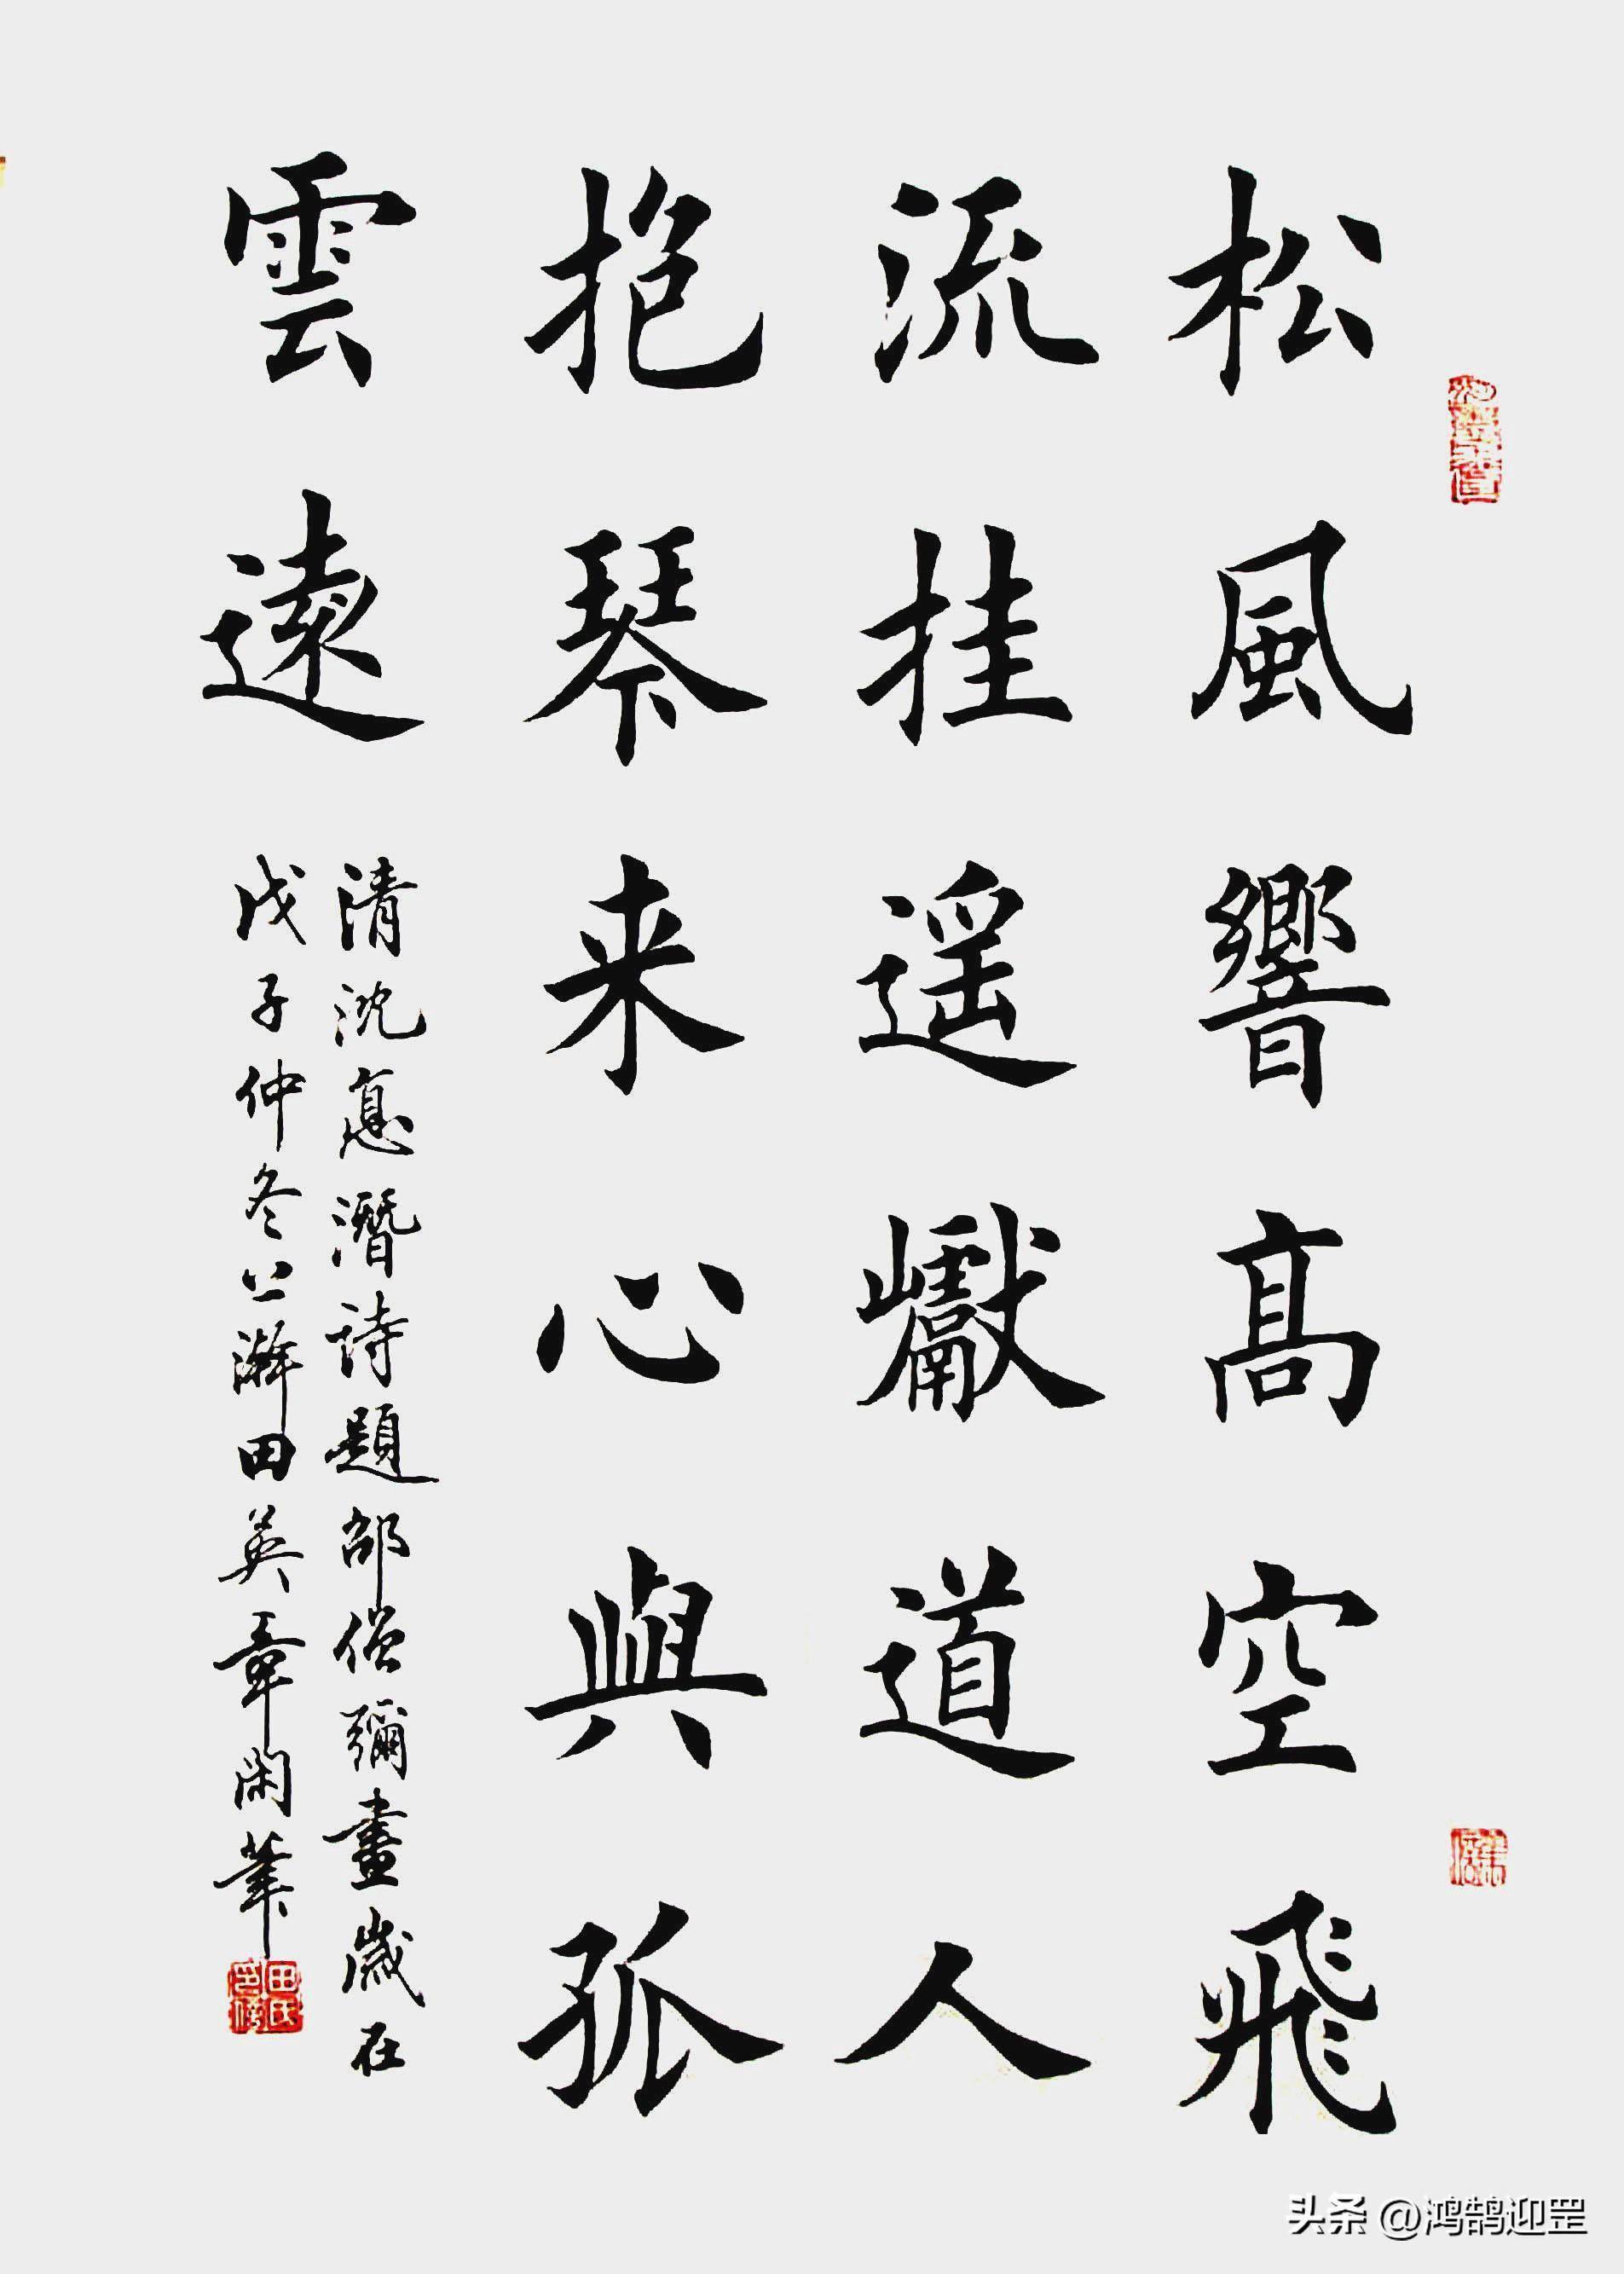 松風響高空飛
流挂遥巘道人
抱琴来心與孤
雲遠
清沈德潛詩題邵僧彌畫歲在
戊子仲冬上澣田英章閑筆
田氏
头条 @鸿鹄迎罡